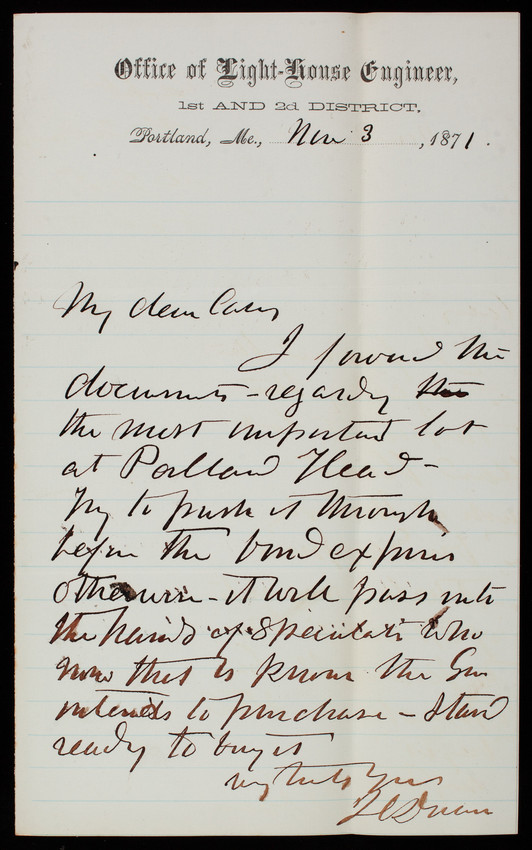 Office of Light-House Engineer,
1st AND 2d DISTRICT.
Portland, Me., Nov 3, 1871.
My dear Casey
I forward the
documents - regarding the
the most important lot
at Portland Head -
Try to push it through
before the bond expires
otherwise - it will pass into
the hands of Speculators who
now that is known the Gov
intends to purchase - stand
ready to buy it
Very truly Yours
J C Duane